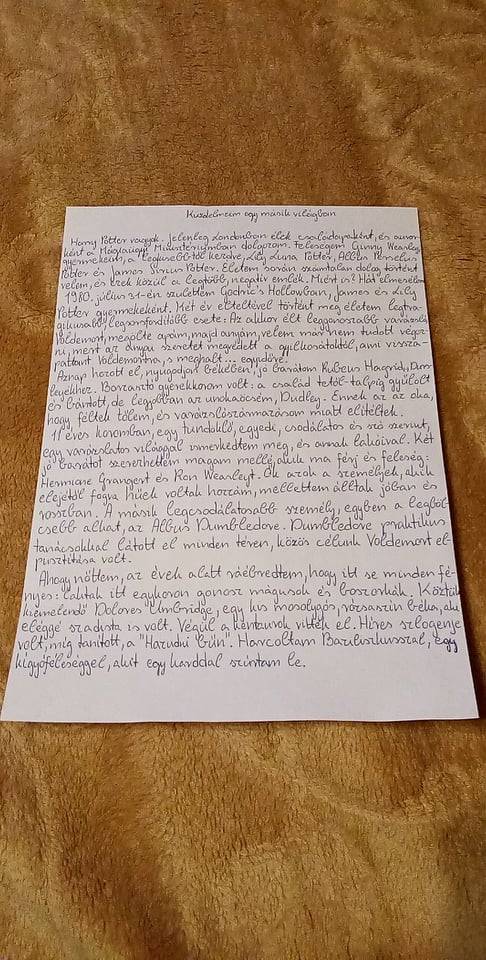 Küzdelmeim egy másik világban
Harry Potter vagyok. Jelenleg Londonban élek családapaként, és auror-
ként a Mágiaügyi Minisztériumban dolgozom. Feleségem Ginny Weasley,
gyermekeim, a legkisebbtől kezdve, Lily Luna Potter, Albus Perselus
Potter és James Sirius Potter. Életem során számtalan dolog történt
velem, és ezek közül a legtöbb, negatív emlék. Miért is? Hát elmesélem
1980. július 31-én születtem Godric's Hollowban, James és Lily
Potter gyermekeként. Két év elteltével történt meg életem legtra-
gikusabb, legsorsfordítóbb esete: Az akkor élt leggonoszabb varázsló,
Voldemort, megölte apám, majd anyám, velem már nem tudott végez-
ni, mert az anyai szeretet megvédett a gyilkosátoktól, ami vissza-
pattant Voldemortra, s meghalt... egyelőre.
Aznap hozott el, nyugodjon békében, jó barátom Rubeus Hagrid, Durs-
leyékhez. Borzasztó gyerekkorom volt: a család tetőtől-talpig gyűlölt
és bántott, de legjobban az unokaöcsém, Dudley. Ennek az az oka,
hogy féltek tőlem, és varázslószármazásom miatt elítéltek.
11 éves koromban, egy tündöklő, egyedi, csodálatos és szó szerint,
egy varázslatos világgal ismerkedtem meg, és annak lakóival. Két
jó barátot szerezhettem magam mellé, akik ma férj és feleség:
Hermione Grangert és Ron Weasleyt. Ők azok a személyek, akik
elejétől fogva hűek voltak hozzám, mellettem álltak jóban és
rosszban. A másik legcsodálatosabb személy, egyben a legböl-
csebb alhat, az Albus Dumbledore. Dumbledore praktikus
tanácsokkal látott el minden téren, közös célunk Voldemort el-
pusztítása volt.
Ahogy nőttem, az évek alatt ráébredtem, hogy itt se minden fé-
nyes: Lakták itt egykoron gonosz mágusok és boszorkák. Köztük
kiemelendő Dolores Umbridge, egy kis mosolygós, rózsaszín béka, aki
eléggé szadista is volt. Végül a kentaurok vitték el. Híres szlogenje
volt, míg tanított, a "Hazudni bűn". Harcoltam Baziliszkusszal, egy
kígyóféleséggel, akit egy karddal szúrtam le.